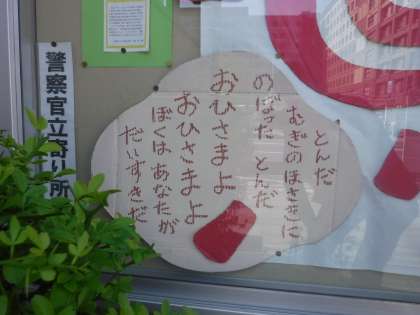 警察官立寄り所
とんだ
むぎのほさきに
のぼった とんだ
おひさまよ
おひさまよ
ぼくは あなたが
だいすきだ